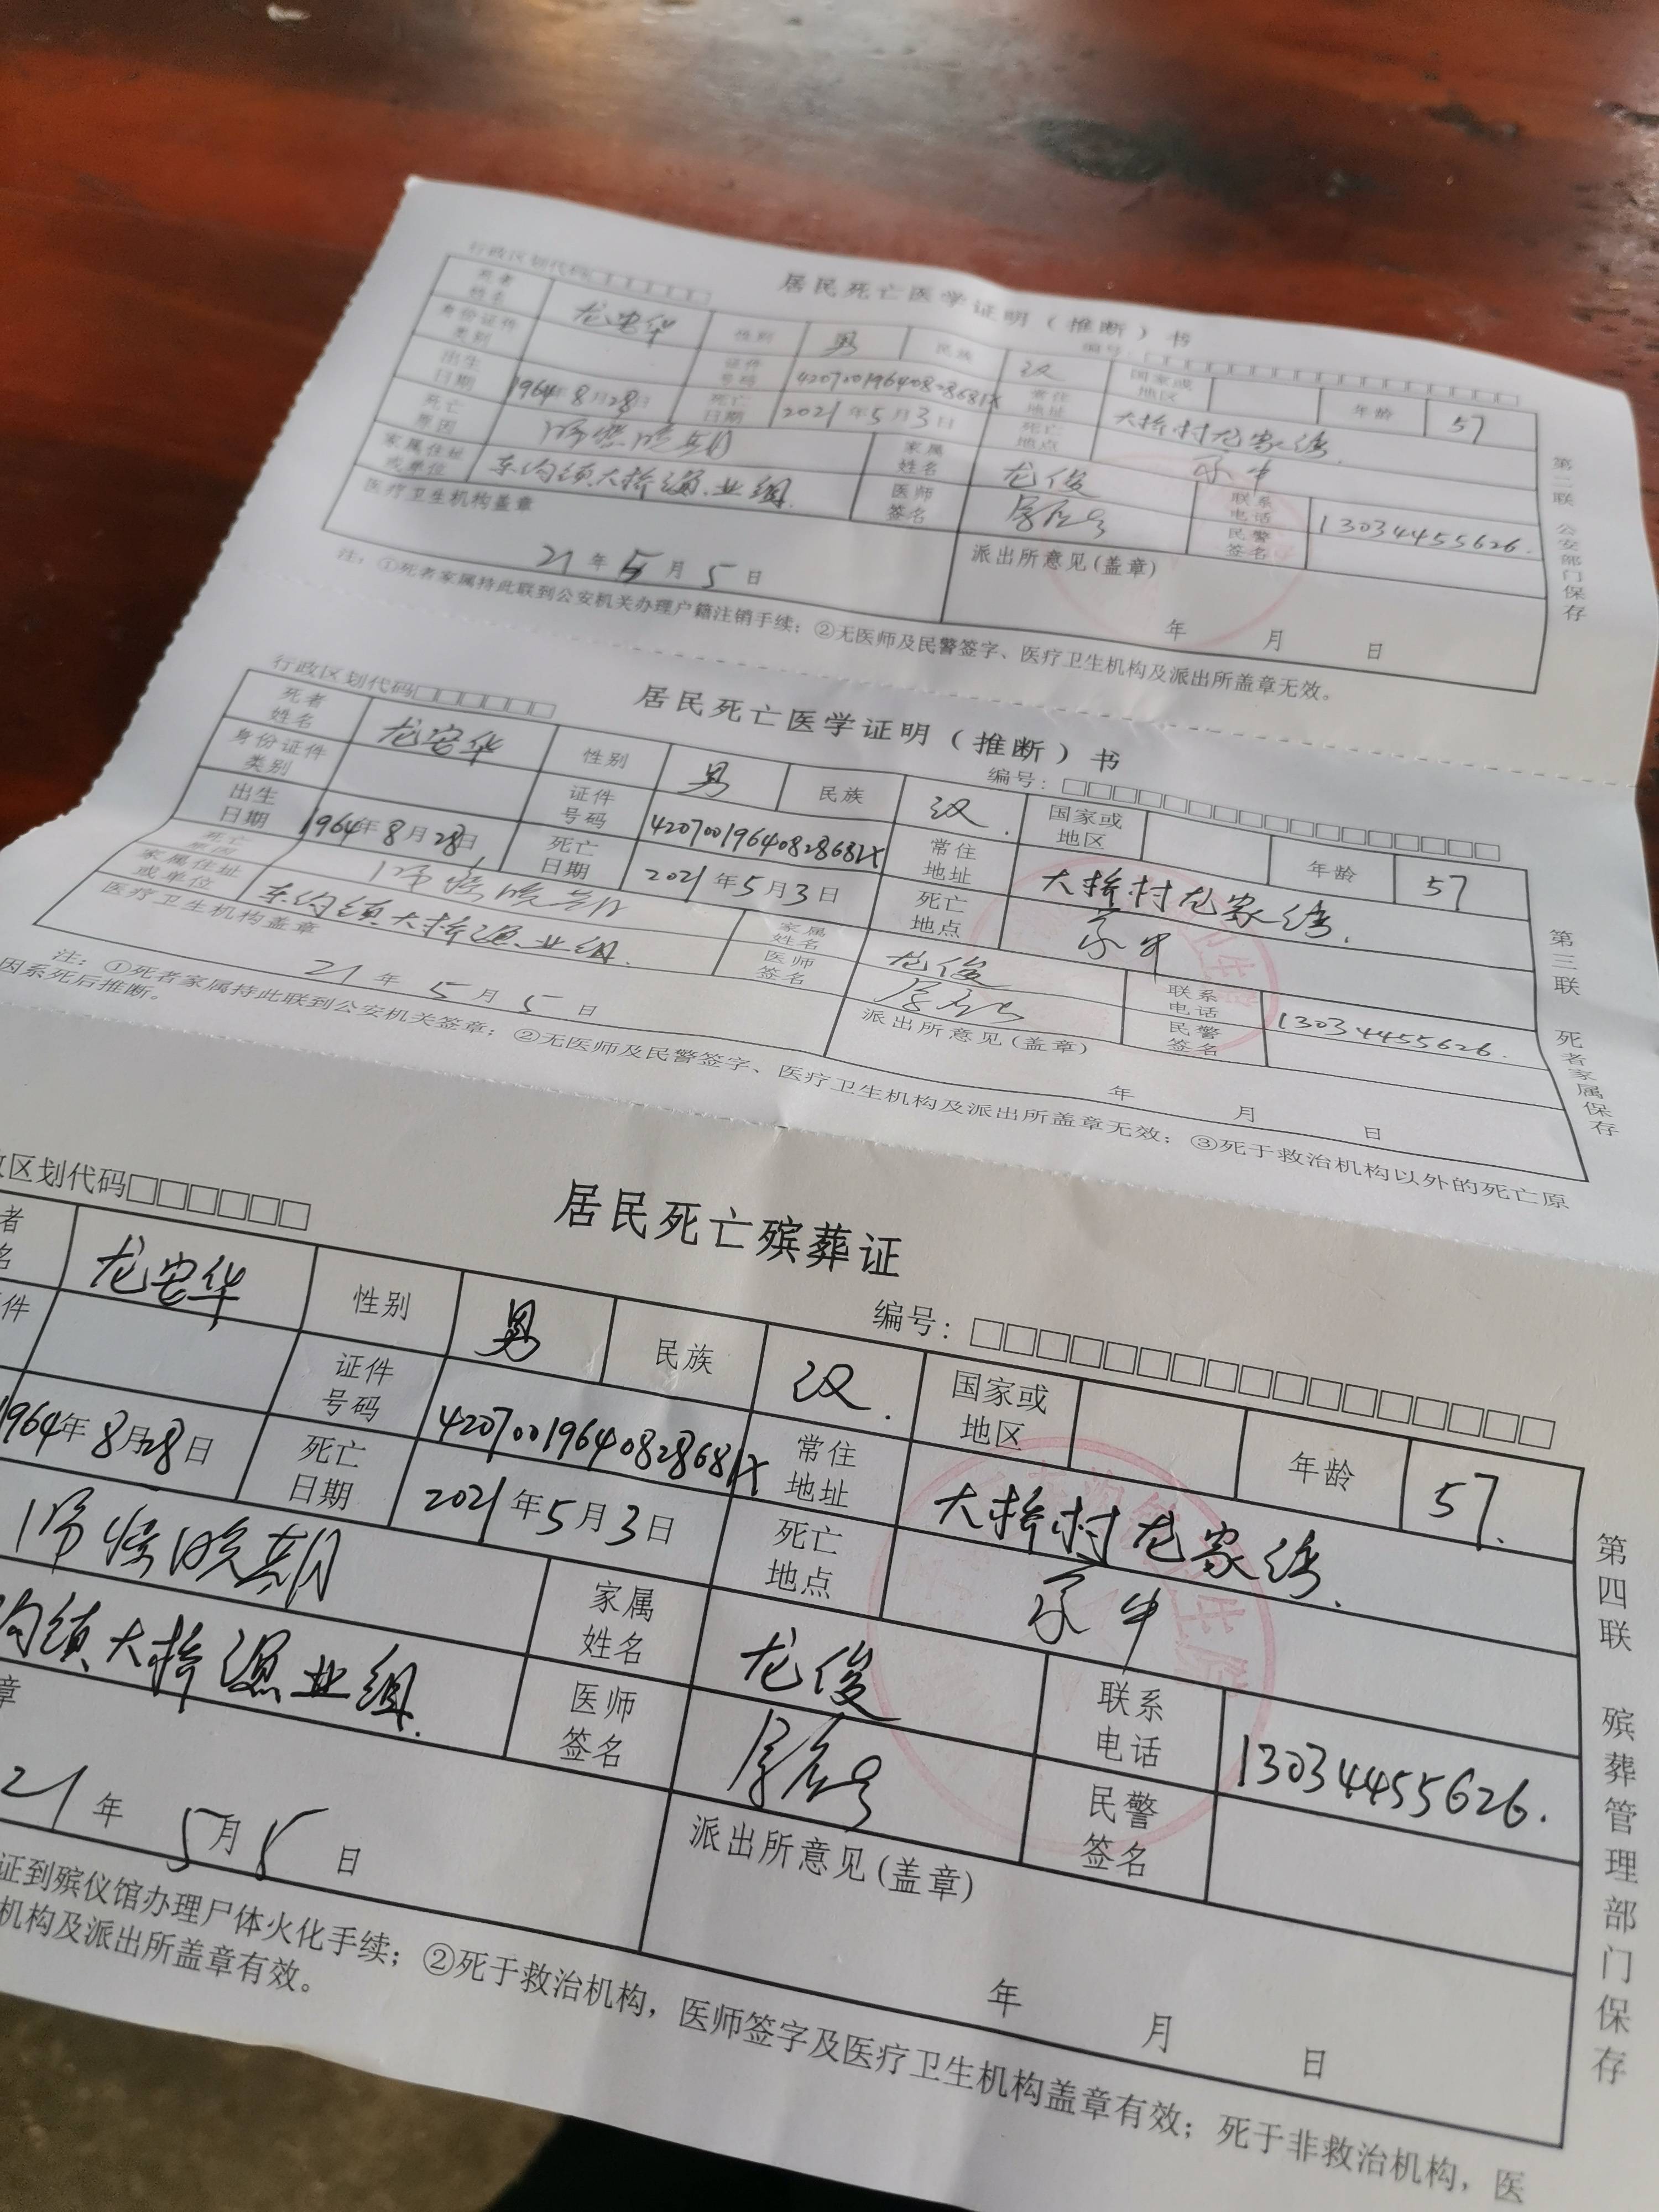 行政区划代码
居民死亡医学证明（推断）书
编号：
死者姓名 龙安华 性别 男 民族 汉 国家或地区 年龄 57
身份证件类别 证件号码 42070019640828681X 常住地址 大桥村龙家湾.
出生日期 1964年8月28日 死亡日期 2021年5月3日 死亡地点 家中
死亡原因 晚期 家属姓名 龙俊 联系电话 13034455626.
家属住址或单位 东沟镇大桥渔业组. 医师签名 民警签名
医疗卫生机构盖章 派出所意见(盖章)
21年5月5日 年 月 日
注：①死者家属持此联到公安机关办理户籍注销手续；②无医师及民警签字、医疗卫生机构及派出所盖章无效。
第二联 公安部门保存
行政区划代码
居民死亡医学证明（推断）书
编号：
死者姓名 龙安华 性别 男 民族 汉. 国家或地区 年龄 57
身份证件类别 证件号码 42070019640828681X 常住地址 大桥村龙家湾.
出生日期 1964年8月28日 死亡日期 2021年5月3日 死亡地点 家中
死亡原因 晚期 家属姓名 龙俊 联系电话 13034455626.
家属住址或单位 东沟镇大桥渔业组. 医师签名 民警签名
医疗卫生机构盖章 派出所意见(盖章)
21年5月5日 年 月 日
注：①死者家属持此联到公安机关签章；②无医师及民警签字、医疗卫生机构及派出所盖章无效；③死于救治机构以外的死亡原
因系死后推断。
第三联 死者家属保存
区划代码
居民死亡殡葬证
编号：
者名 龙安华 性别 男 民族 汉. 国家或地区 年龄 57.
件 证件号码 42070019640828681X 常住地址 大桥村龙家湾.
1964年8月28日 死亡日期 2021年5月3日 死亡地点 家中
晚期 家属姓名 龙俊 联系电话 13034455626.
沟镇大桥渔业组. 医师签名 民警签名
章 派出所意见(盖章)
21年5月5日 年 月 日
证到殡仪馆办理尸体火化手续；②死于救治机构，医师签字及医疗卫生机构盖章有效；死于非救治机构，医
机构及派出所盖章有效。
第四联 殡葬管理部门保存